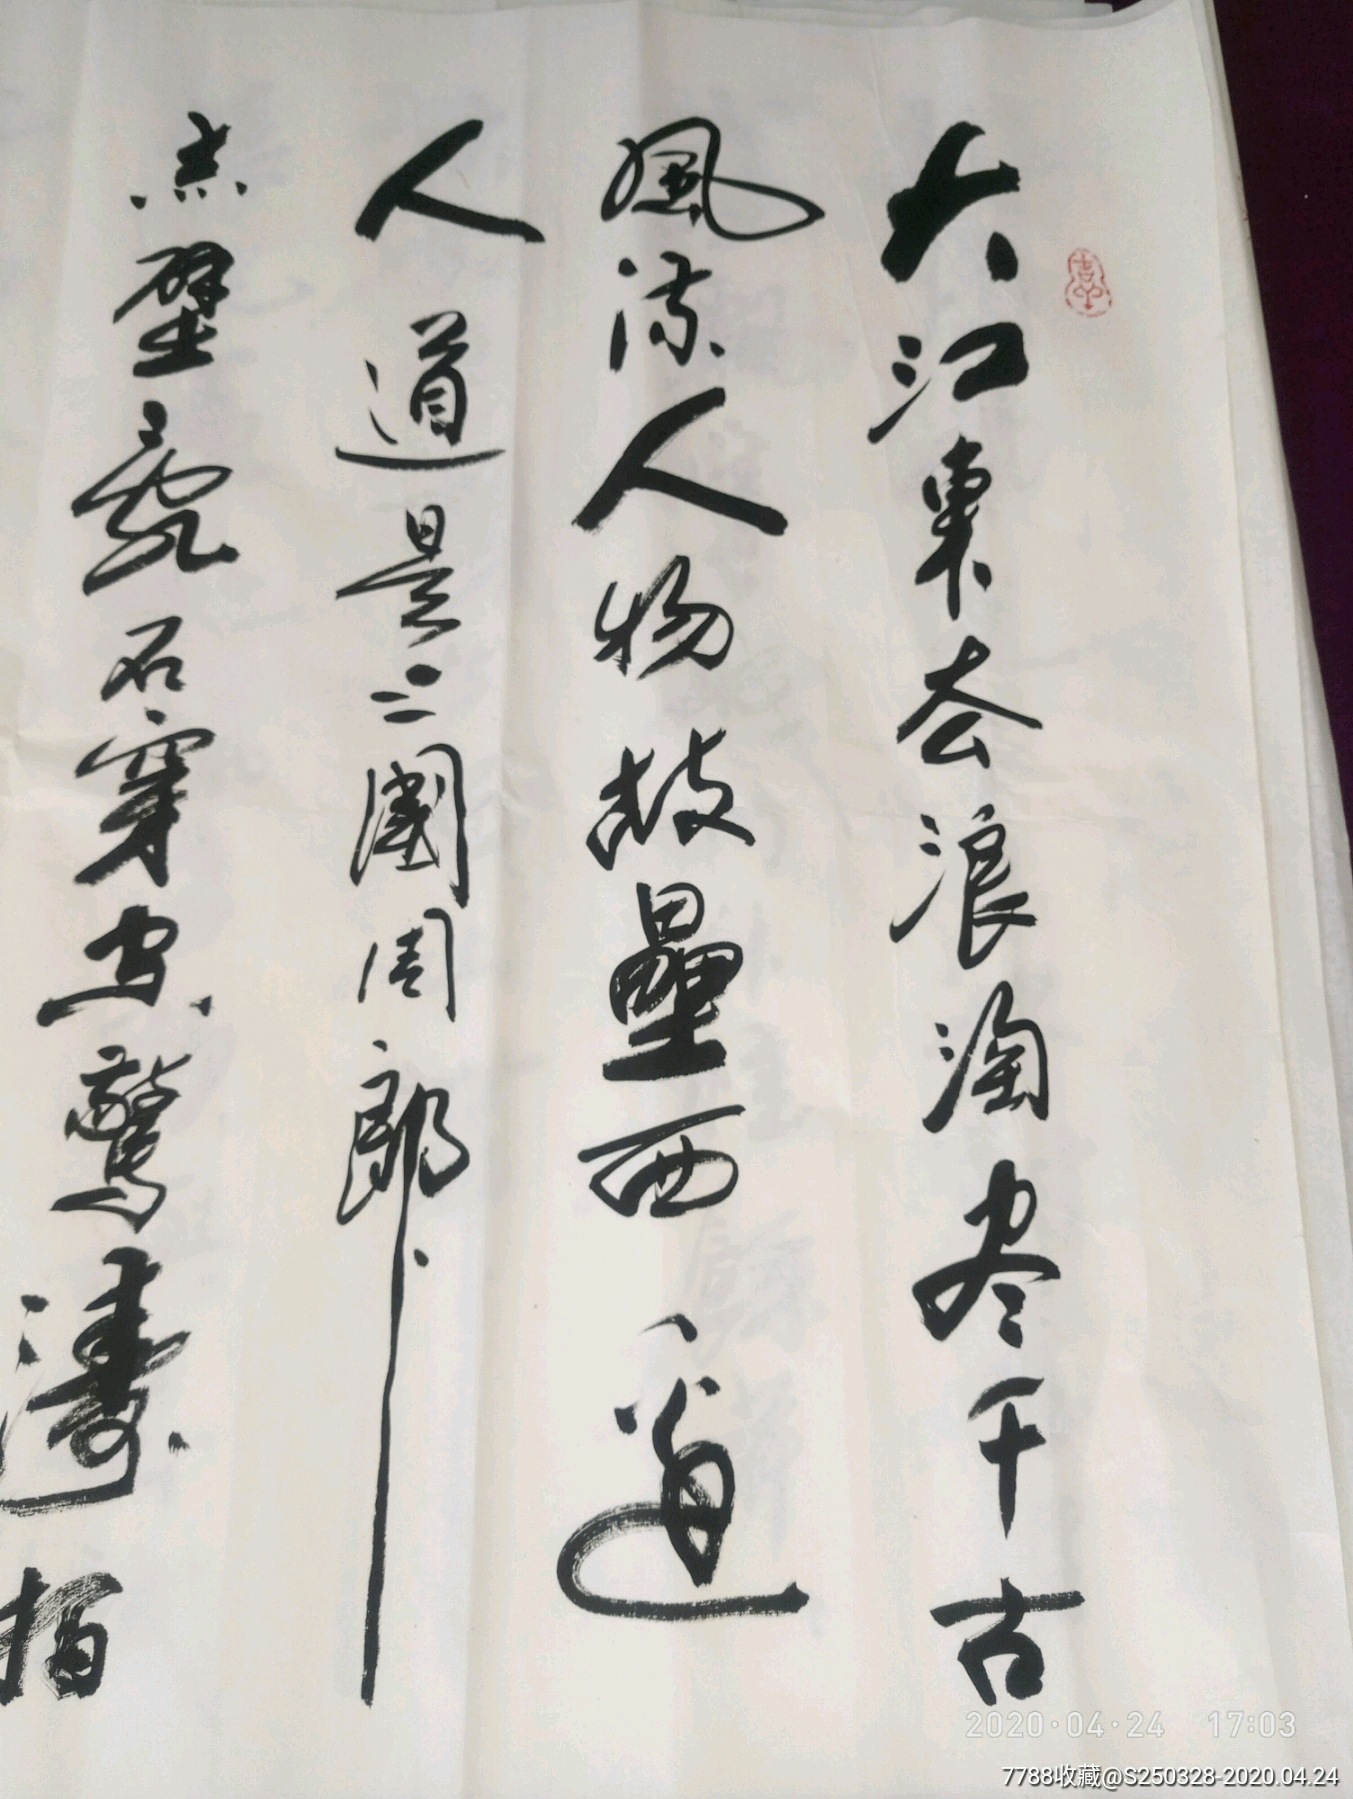 大江東去浪淘尽千古
風流人物故壘西邊
人道是三國周郎
赤壁亂石穿空驚濤拍
2020·04·24 17:03
7788收藏@S250328-2020.04.24